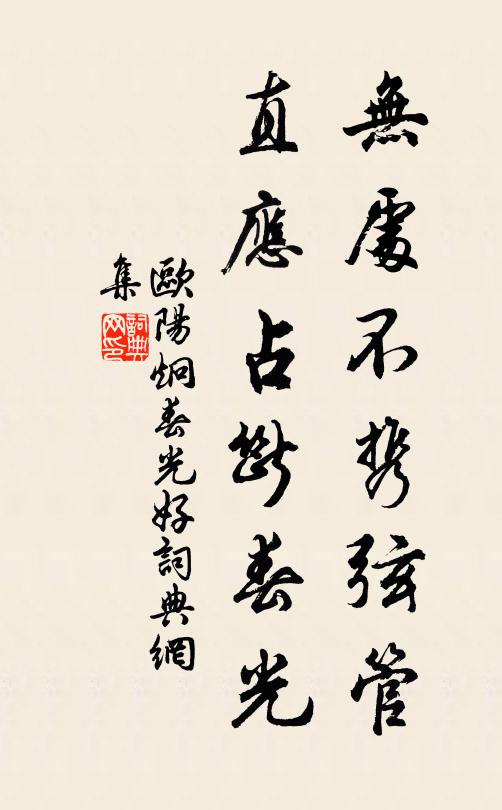 無處不携弦管
直應占斷春光
歐陽炯春光好詞典網
集
詞典
网印